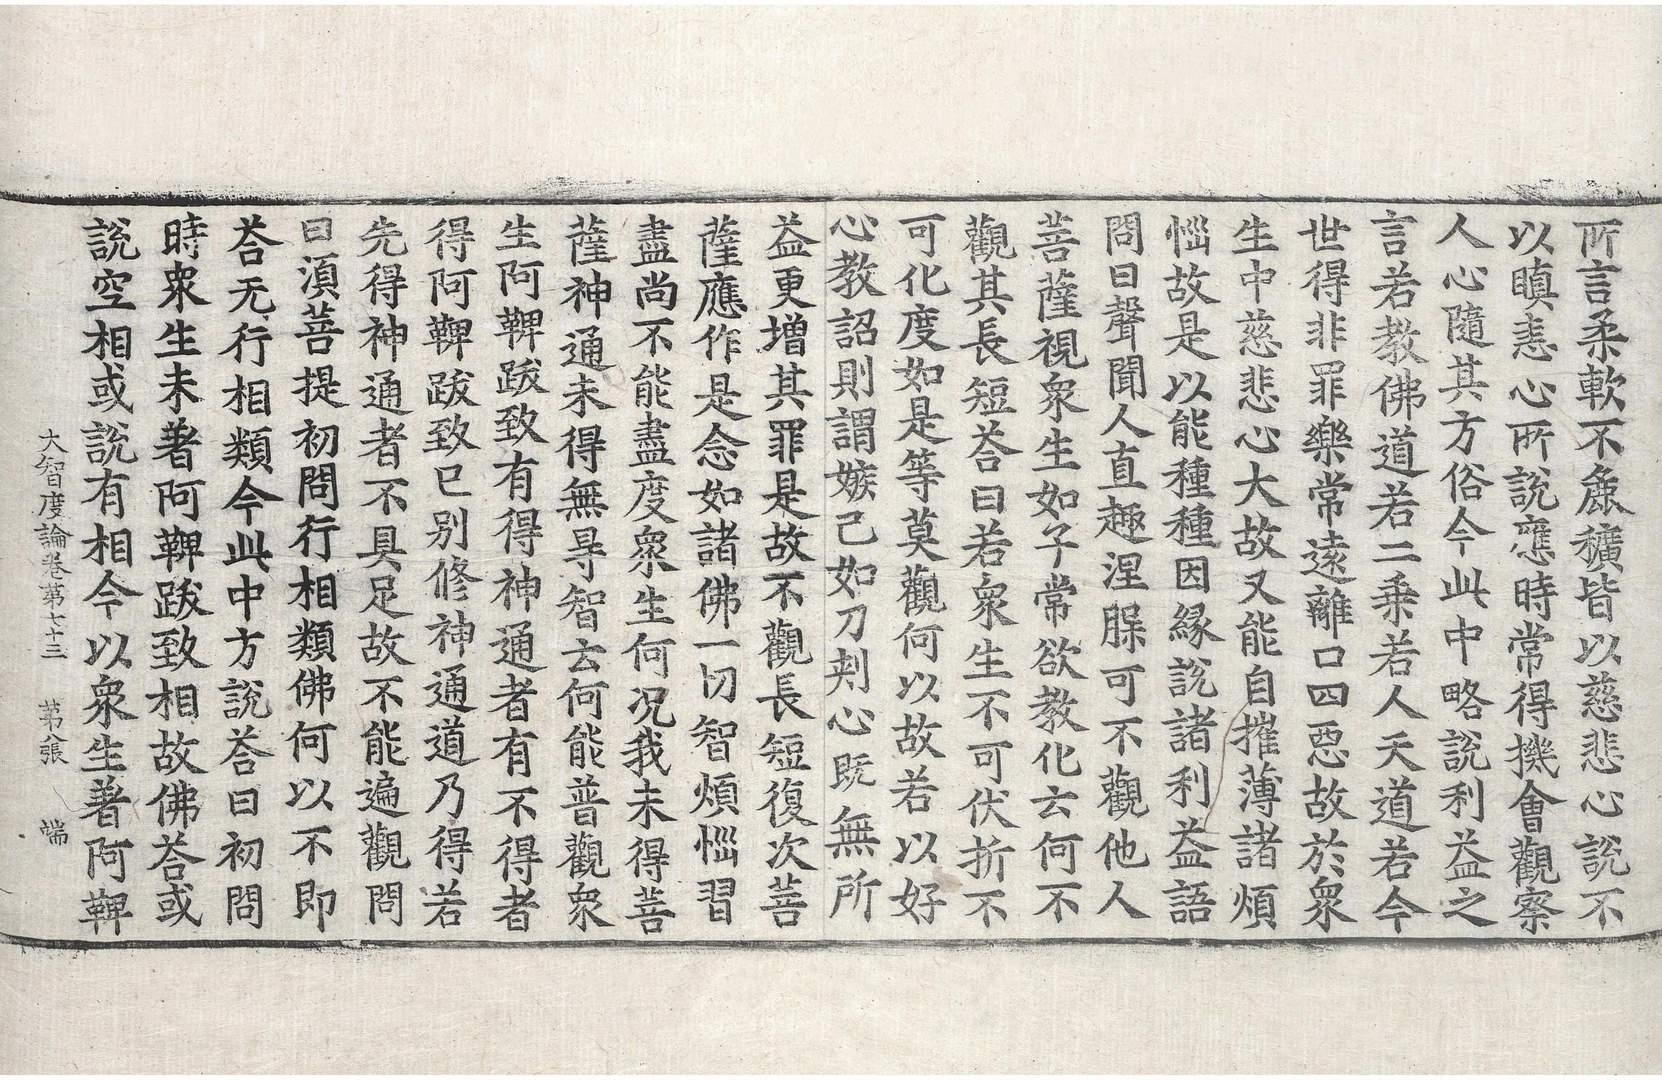 所言柔軟不麁獷皆以慈悲心說不
以瞋恚心所說應時常得機會觀察
人心隨其方俗今此中略說利益之
言若教佛道若二乗若人天道若今
世得非罪樂常遠離口四惡故於衆
生中慈悲心大故又能自摧薄諸煩
惱故是以能種種因緣說諸利益語
問曰聲聞人直趣涅槃可不觀他人
菩薩視衆生如子常欲教化云何不
觀其長短荅曰若衆生不可伏折不
可化度如是等莫觀何以故若以好
心教詔則謂嫉己如刀刺心既無所
益更增其罪是故不觀長短復次菩
薩應作是念如諸佛一切智煩惱習
盡尚不能盡度衆生何況我未得菩
薩神通未得無㝵智云何能普觀衆
生阿鞞跋致有得神通者有不得者
得阿鞞跋致已別修神通道乃得若
先得神通者不具足故不能遍觀問
曰湏菩提初問行相類佛何以不即
荅无行相類今此中方說荅曰初問
時衆生未著阿鞞跋致相故佛荅或
說空相或說有相今以衆生著阿鞞
大智度論卷第七十三 第八張 端